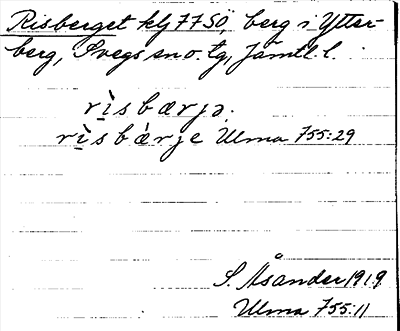 Risberget klj 77 SÖ, berg i Ytter-
berg, Svegs sn o. tg, Jämtl. l.
rìsbærjə.
rìsbæ̀rje Ulma 755:29
S. Åsander 1919
Ulma 755:11